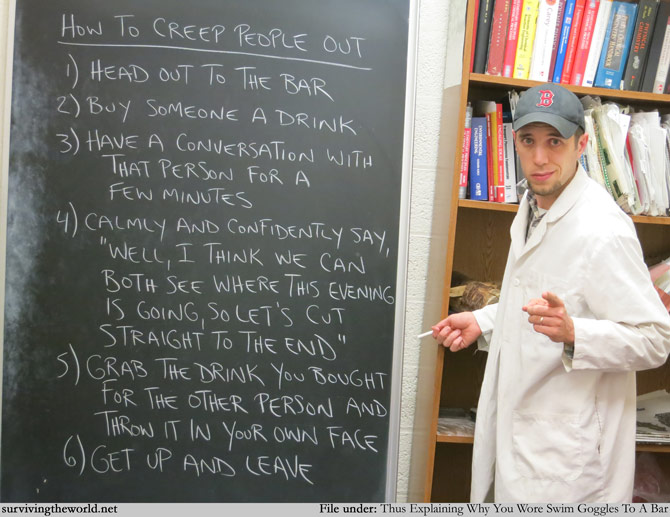 HOW TO CREEP PEOPLE OUT
1) HEAD OUT TO THE BAR
2) BUY SOMEONE A DRINK.
3) HAVE A CONVERSATION WITH
THAT PERSON FOR A
FEW MINUTES
4) CALMLY AND CONFIDENTLY SAY,
"WELL, I THINK WE CAN
BOTH SEE WHERE THIS EVENING
IS GOING, SO LET'S CUT
STRAIGHT TO THE END"
5) GRAB THE DRINK YOU BOUGHT
FOR THE OTHER PERSON AND
THROW IT IN YOUR OWN FACE
6) GET UP AND LEAVE
B
survivingtheworld.net
File under: Thus Explaining Why You Wore Swim Goggles To A Bar